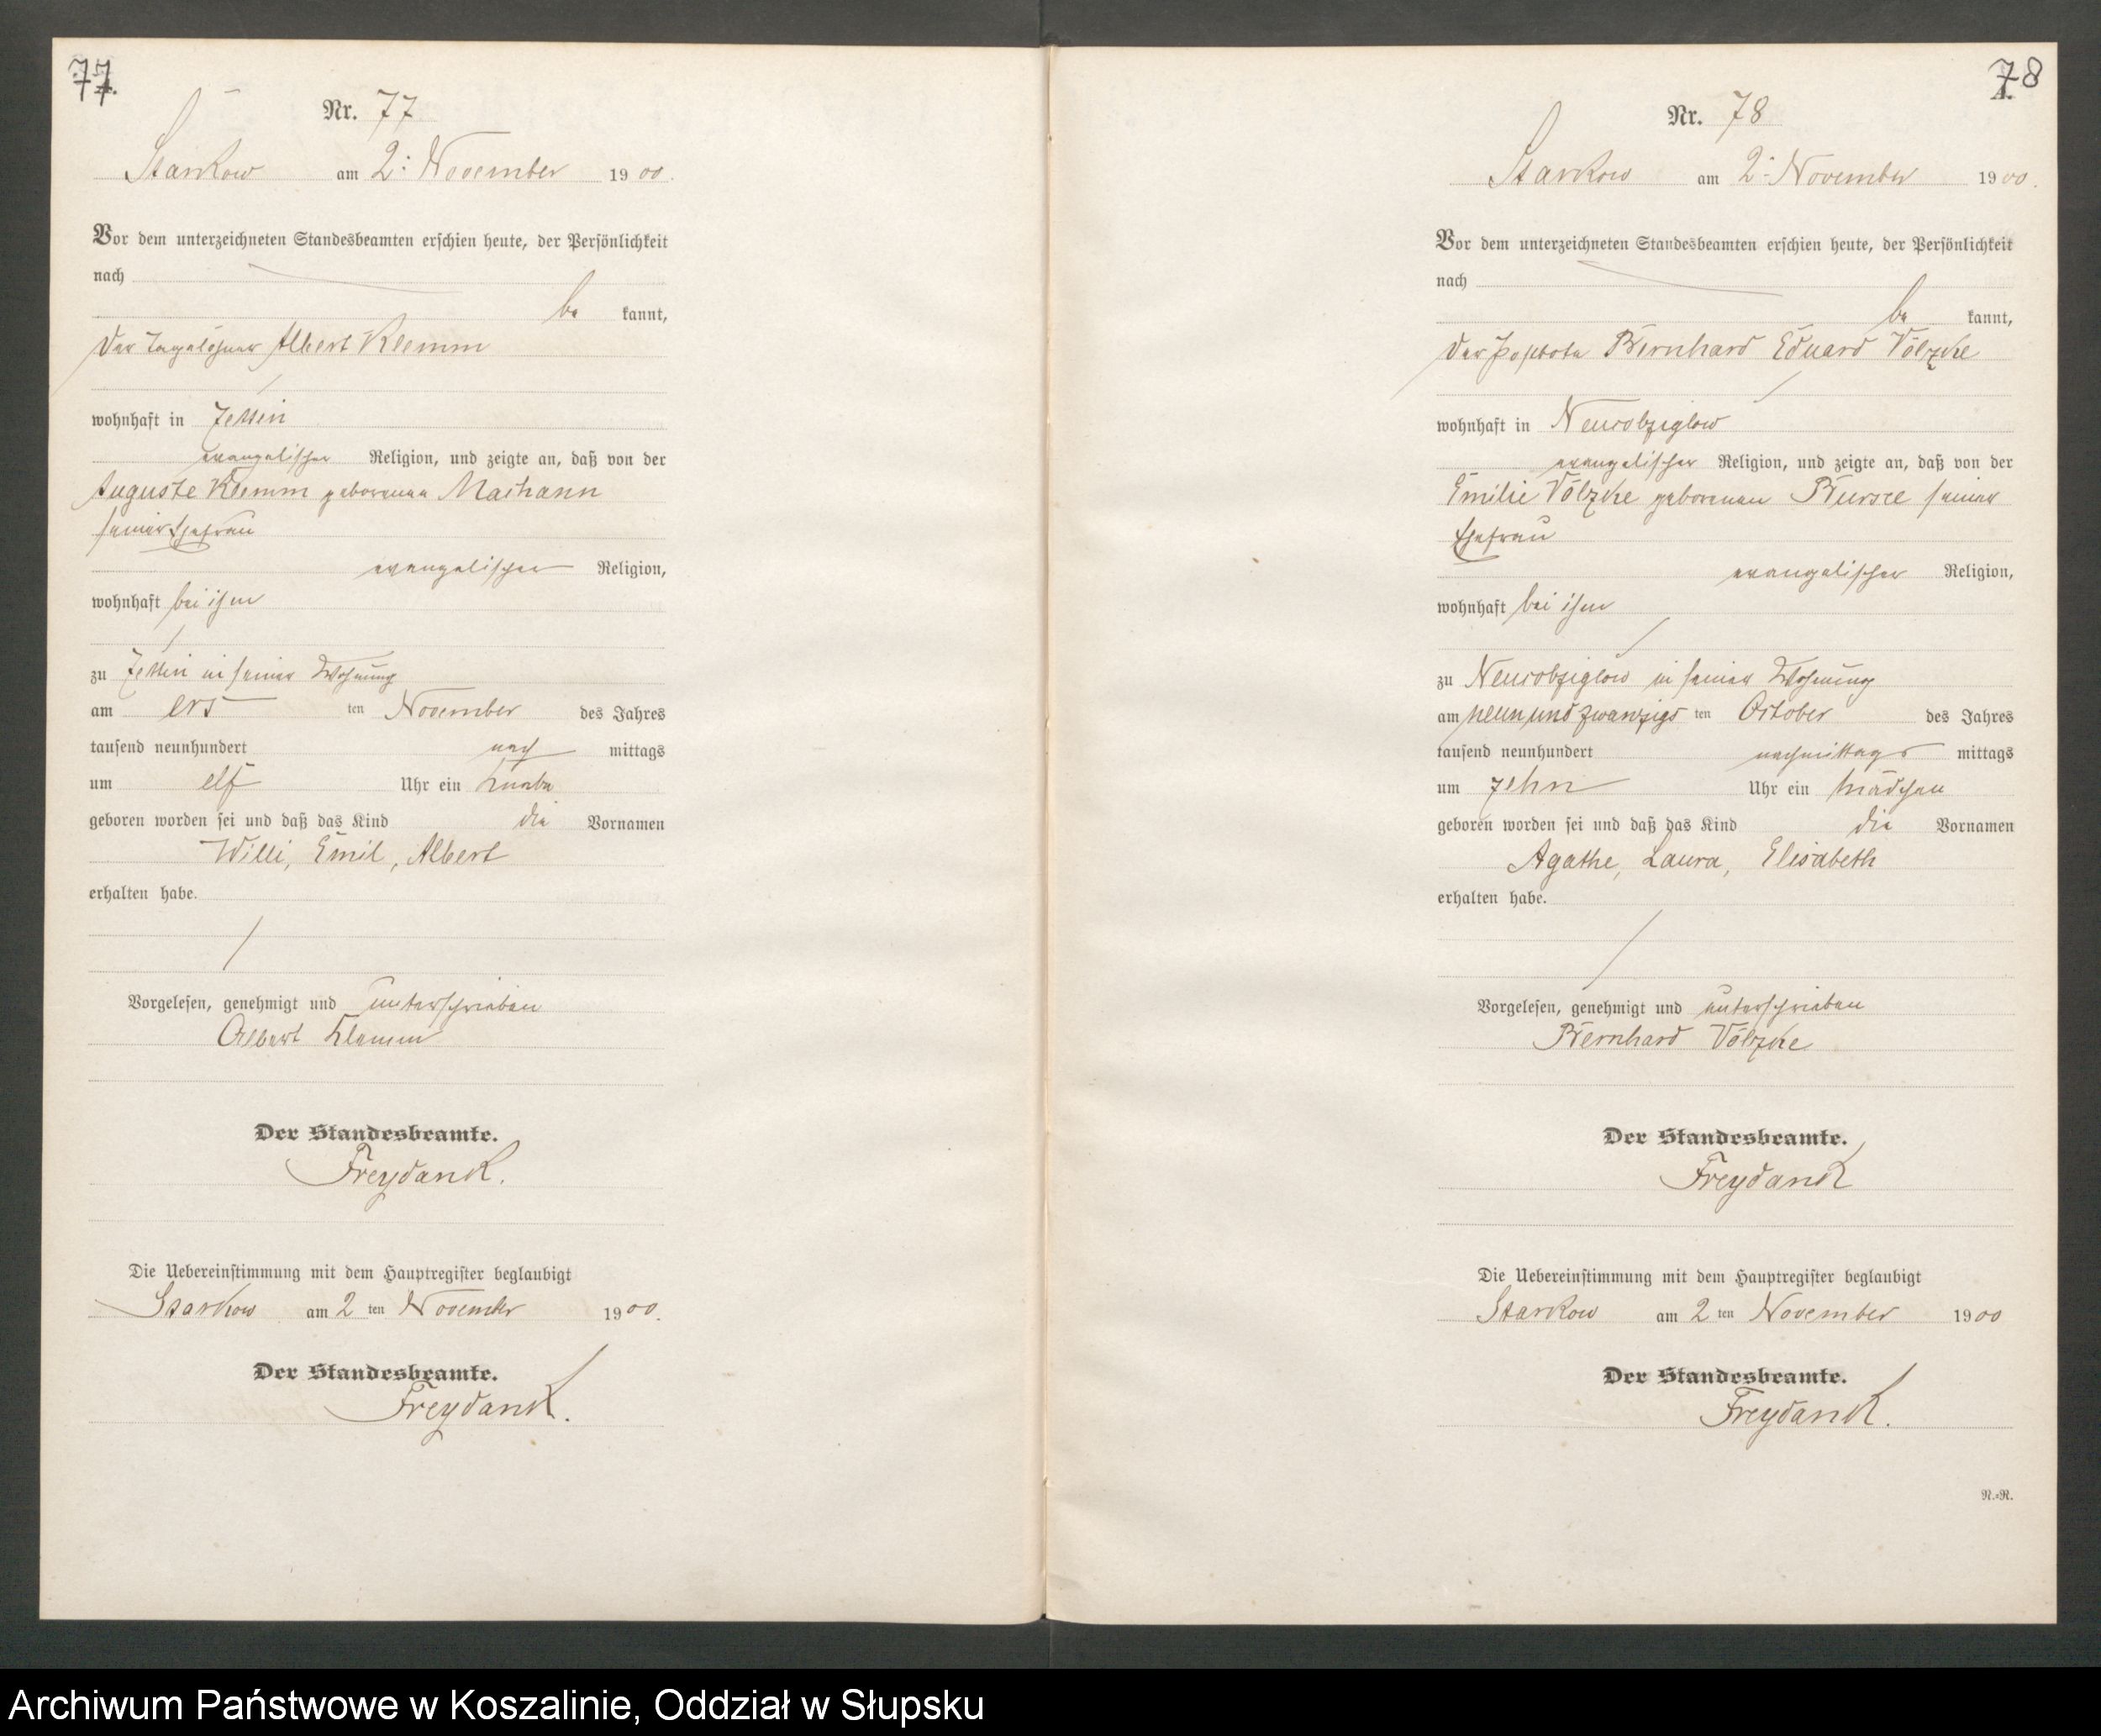 77.
Nr. 77
Starkow am 2. November 1900.
Vor dem unterzeichneten Standesbeamten erschien heute, der Persönlichkeit
nach
be kannt,
der Tagelöhner Albert Klemm
wohnhaft in Zettin
evangelischer Religion, und zeigte an, daß von der
Auguste Klemm geborenen Maihann
seiner Ehefrau
evangelischer Religion,
wohnhaft bei ihm
zu Zettin in seiner Wohnung
am ers ten November des Jahres
tausend neunhundert nach mittags
um elf Uhr ein Knabe
geboren worden sei und daß das Kind die Vornamen
Willi, Emil, Albert
erhalten habe.
Vorgelesen, genehmigt und unterschrieben
Albert Klemm
Der Standesbeamte.
Freydank.
Die Uebereinstimmung mit dem Hauptregister beglaubigt
Starkow am 2 ten November 1900.
Der Standesbeamte.
Freydank.
78
Nr. 78
Starkow am 2. November 1900.
Vor dem unterzeichneten Standesbeamten erschien heute, der Persönlichkeit
nach
be kannt,
der Postbote Bernhard Eduard Völzke
wohnhaft in Neucolziglow
evangelischer Religion, und zeigte an, daß von der
Emilie Völzke geborenen seiner
Ehefrau
evangelischer Religion,
wohnhaft bei ihm
zu Neucolziglow in seiner Wohnung
am neun und zwanzigs ten October des Jahres
tausend neunhundert nachmittags mittags
um zehn Uhr ein Mädchen
geboren worden sei und daß das Kind die Vornamen
Agathe, Laura, Elisabeth
erhalten habe.
Vorgelesen, genehmigt und unterschrieben
Bernhard Völzke
Der Standesbeamte.
Freydank
Die Uebereinstimmung mit dem Hauptregister beglaubigt
Starkow am 2 ten November 1900
Der Standesbeamte.
Freydank.
N.=R.
Archiwum Państwowe w Koszalinie, Oddział w Słupsku